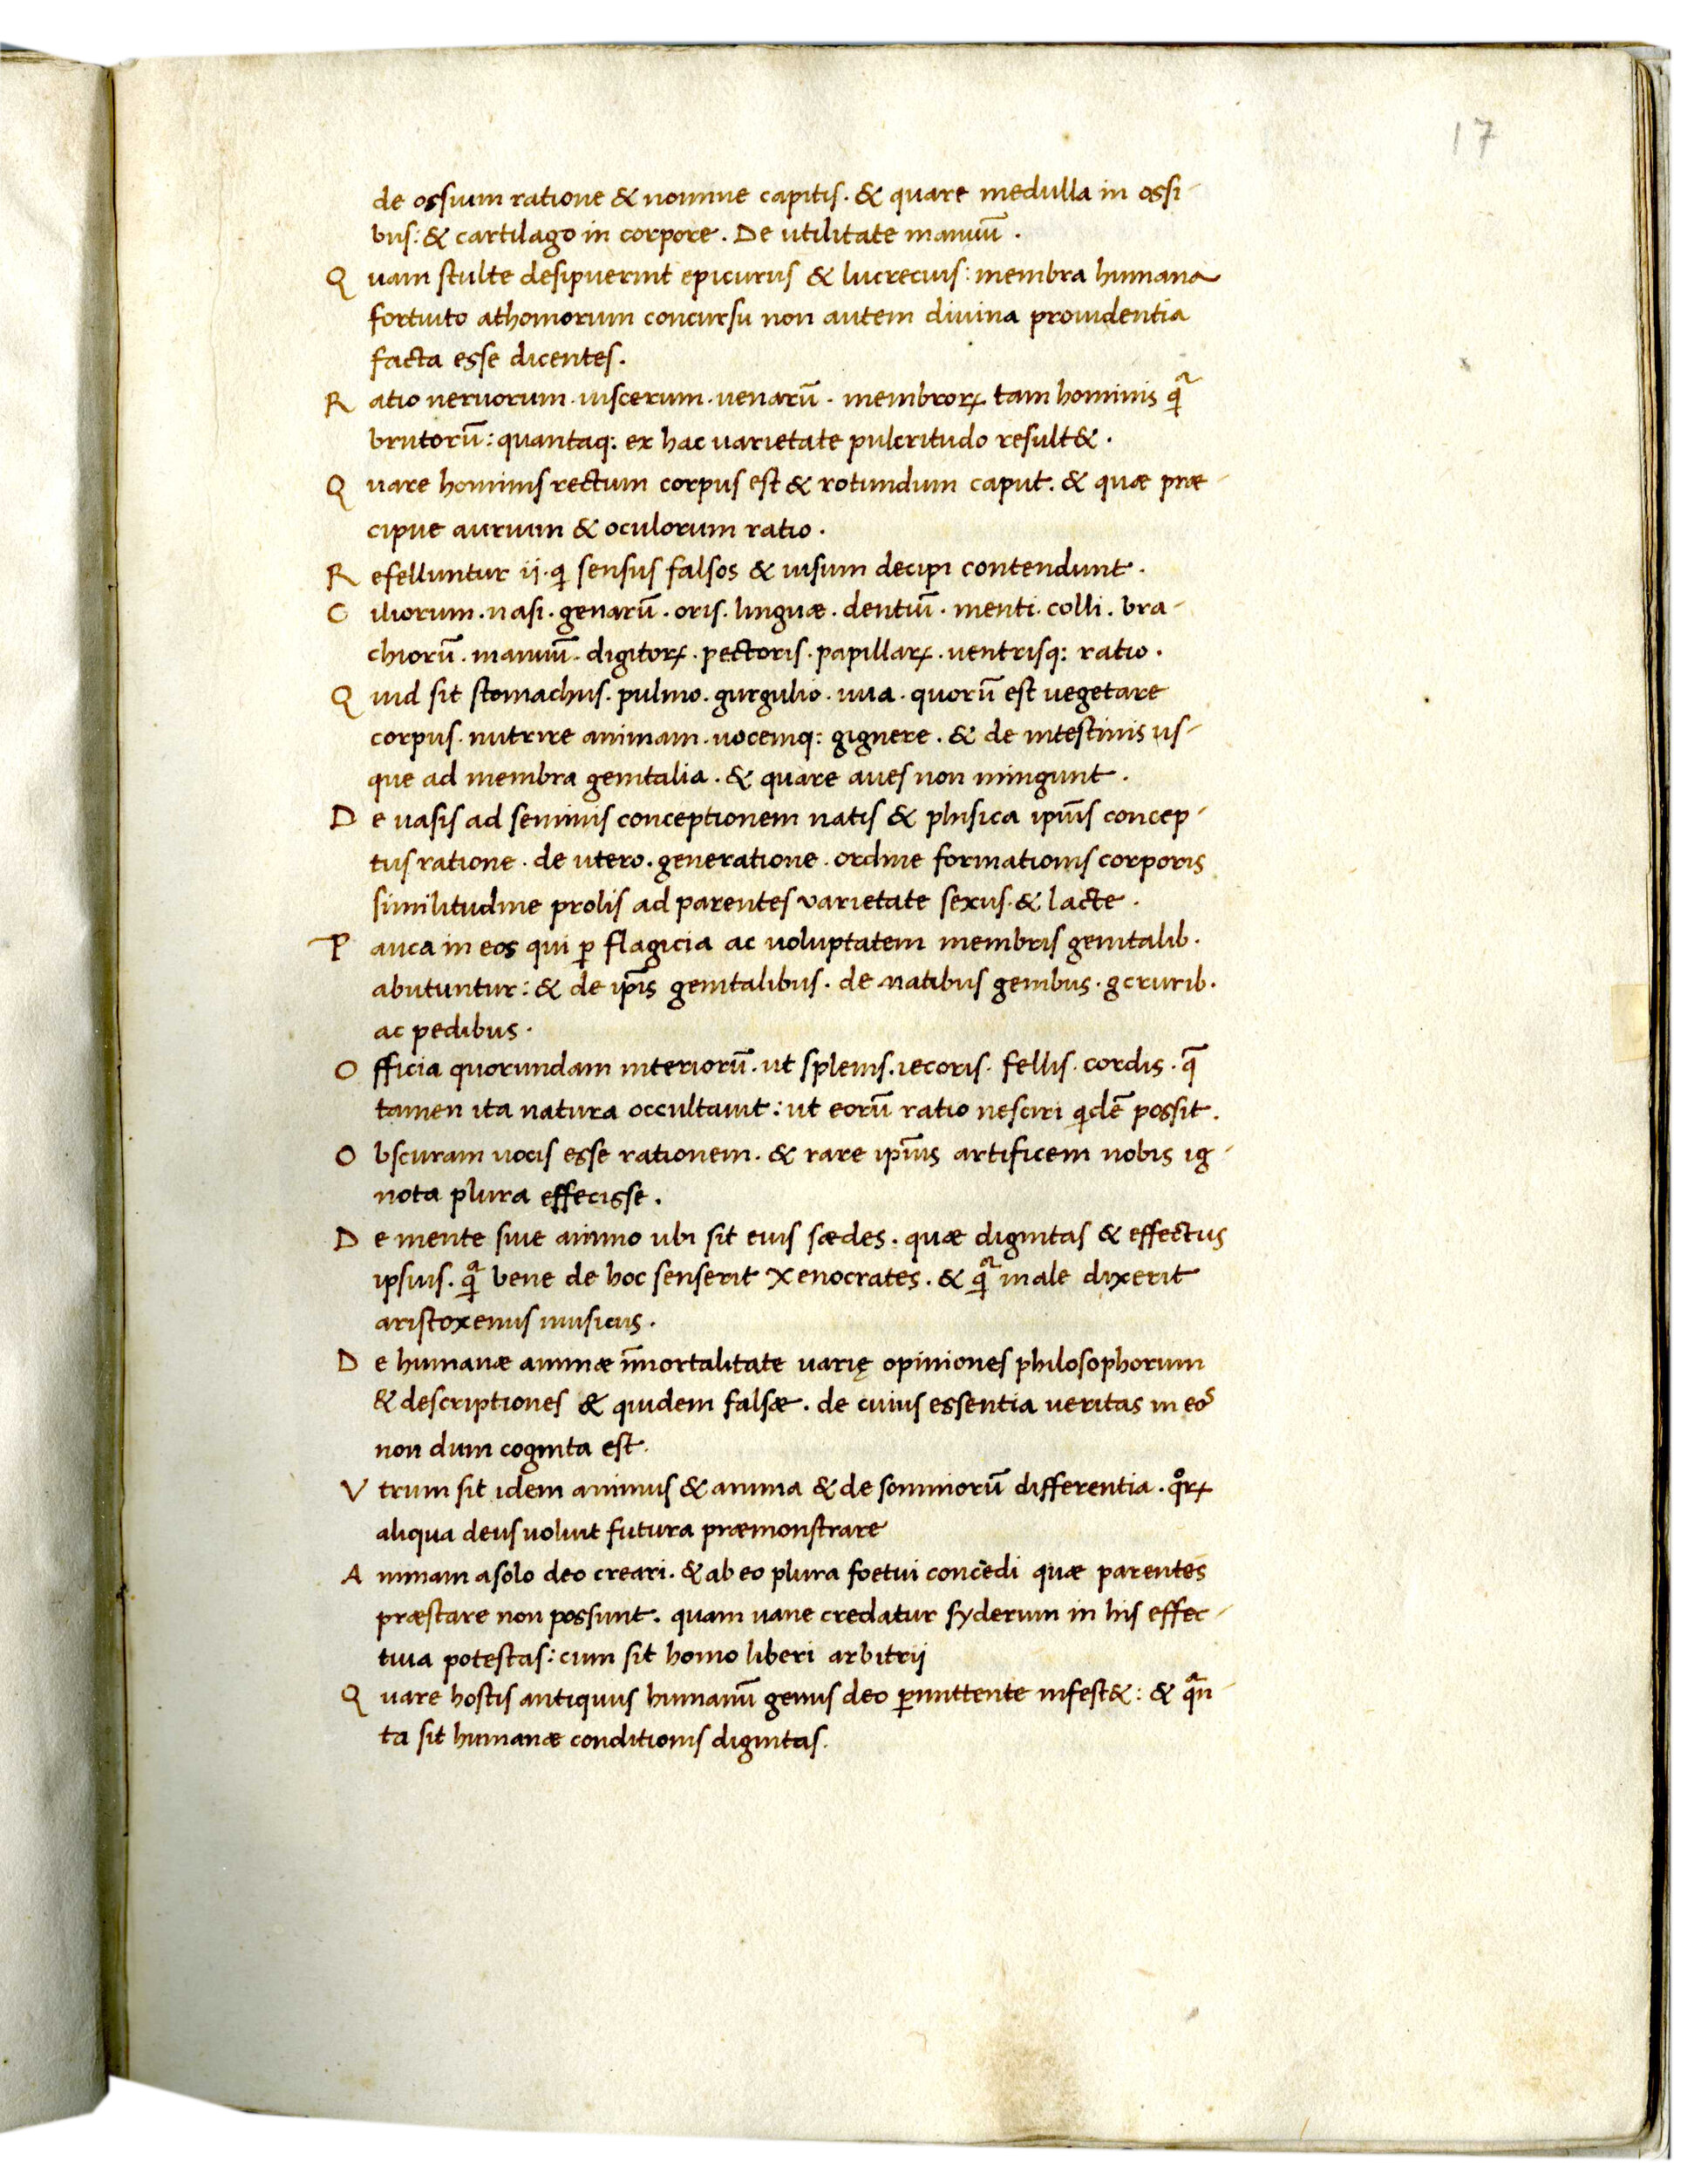 17
de ossium ratione & nomine capitis. & quare medulla in ossi-
bus: & cartilago in corpore. De utilitate manuū.
Quam stulte desipuerint epicurus & lucrecius: membra humana
fortuito athomorum concursu non autem diuina prouidentia
facta esse dicentes.
Ratio neruorum. uiscerum. uenarū. membrorꝝ tam hominis qᷓ
brutorū: quantaq: ex hac uarietate pulcritudo result&.
Quare hominis rectum corpus est & rotundum caput. & quæ præ-
cipue aurium & oculorum ratio.
Refelluntur ii. qi sensus falsos & uisum decipi contendunt.
Ciliorum. nasi. genarū. oris. linguæ. dentiū. menti. colli. bra-
chiorū. manuū. digitorꝝ. pectoris. papillarꝝ. uentrisq: ratio.
Quid sit stomachus. pulmo. gurgulio. uua. quorū est uegetare
corpus. nutrire animam. uocemq: gignere. & de intestinis us-
que ad membra genitalia. & quare aues non mingunt.
De uasis ad seminis conceptionem natis & phisica ipīus concep-
tus ratione. de utero. generatione. ordine formationis corporis
similitudine prolis ad parentes varietate sexus. & lacte.
Pauca in eos qui ꝑ flagicia ac uoluptatem membris genitalib.
abutuntur: & de ip̄is genitalibus. de natibus genibus. gcrurib.
ac pedibus.
Officia quorundam interiorū. ut splenis. iecoris. fellis. cordis. q̄
tamen ita natura occultauit: ut eorū ratio nesciri qidē possit.
Obscuram uocis esse rationem. & rare ip̄ius artificem nobis ig-
nota plura effecisse.
De mente siue animo ubi sit eius sædes. quæ dignitas & effectus
ipsius. qᷓ bene de hoc senserit Xenocrates. & qᷓ male dixerit
aristoxenus musicus.
De humanæ animæ īmortalitate varię opiniones philosophorum
& descriptiones & quidem falsæ. de cuius essentia ueritas in eos
non dum cognita est.
Vtrum sit idem animus & anima & de somniorū differentia. qͦrꝝ
aliqua deus uoluit futura præmonstrare
Animam a solo deo creari. & ab eo plura foetui concēdi quæ parentes
præstare non possunt. quam uane credatur syderum in his effec-
tiua potestas: cum sit homo liberi arbitrii
Quare hostis antiquus humanū genus deo ꝑmittente infest&: & qᷓn-
ta sit humanæ conditionis dignitas.